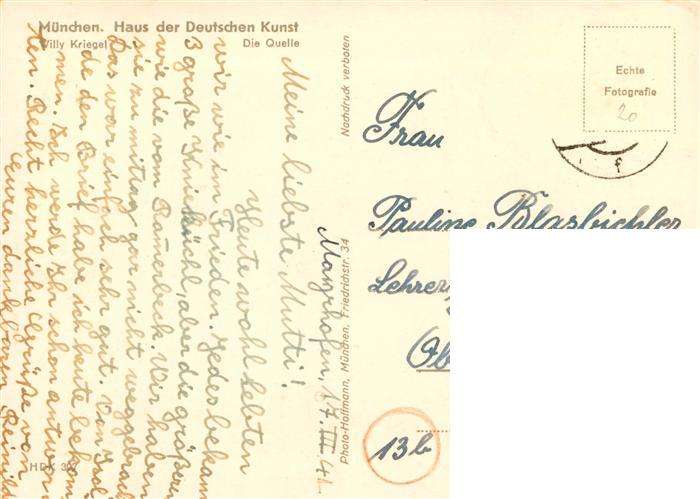 München. Haus der Deutschen Kunst
Willy Kriegel
Die Quelle
Nachdruck verboten
Photo-Hoffmann, München, Friedrichstr. 34
Echte
Fotografie
20
Frau
Pauline Blasbichler
Lehrer
Ob
13b
Mayrhofen, 17. III 41
Meine liebste Mutti!
Heute wohl lebten
wir wie im Frieden. Jeder bekam
3 große Knieküchl, aber die größer
wie die vom Rauerbeck. Wir haben
sie zu mittag gar nicht weggebracht
Das war einfach sehr gut. Von
de den Brief habe ich heute bekom
men. Ich werde Ihr schon antwor
ten. Recht herrliche Grüße von
Euren dankbaren
HDK 307